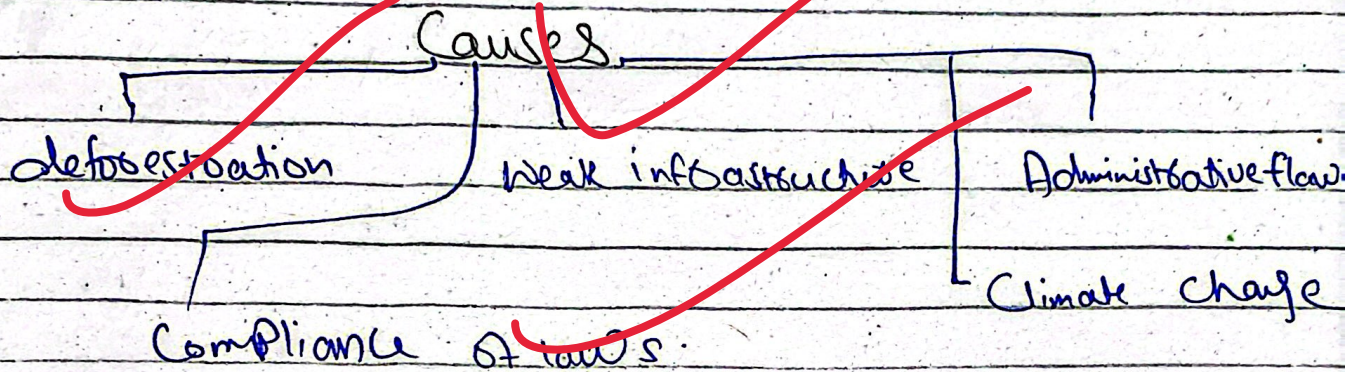 Causes
deforestation weak infrastructure Administrative flaw.
Climate Change
Compliance of laws.